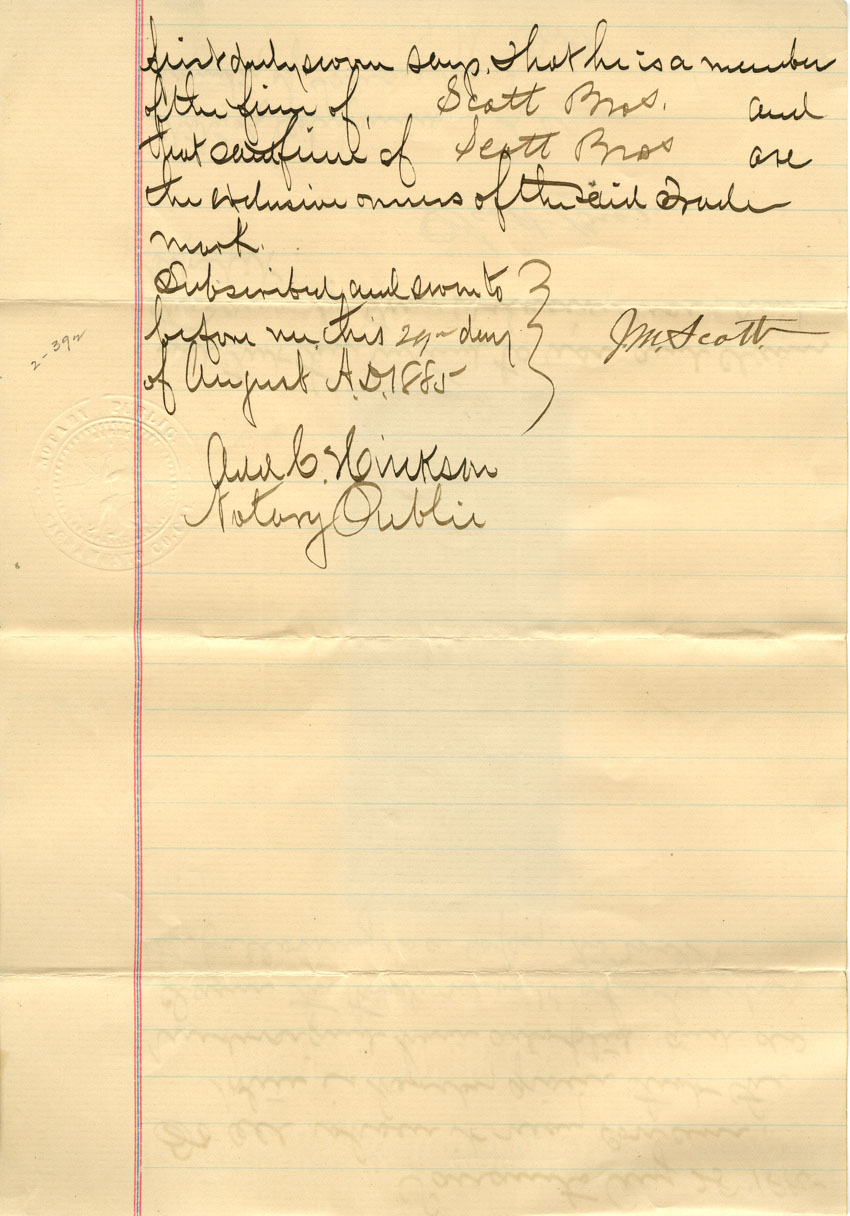 first duly sworn says, that he is a member
of the firm of, Scott Bros. and
that said firm of Scott Bros are
the exclusive owners of the said Trade
mark.
Subscribed and sworn to
before me this 29 day
of August A.D. 1885
J.M. Scott
2-392
NOTARY PUBLIC
Add C. Hinkson
Notary Public